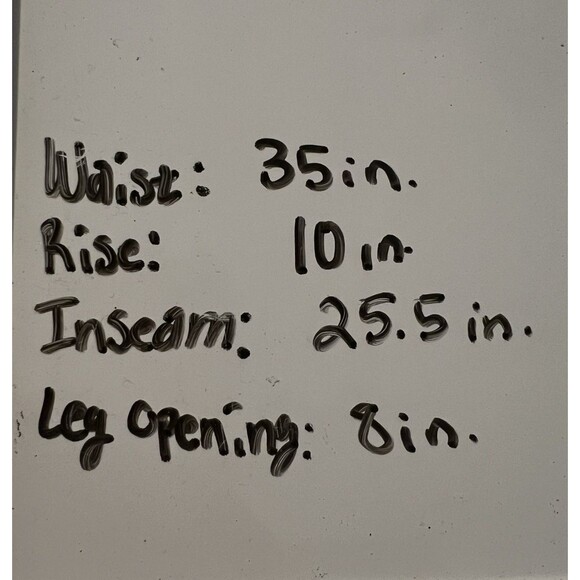 Waist: 35in.
Rise: 10 in.
Inseam: 25.5 in.
Leg opening: 8in.